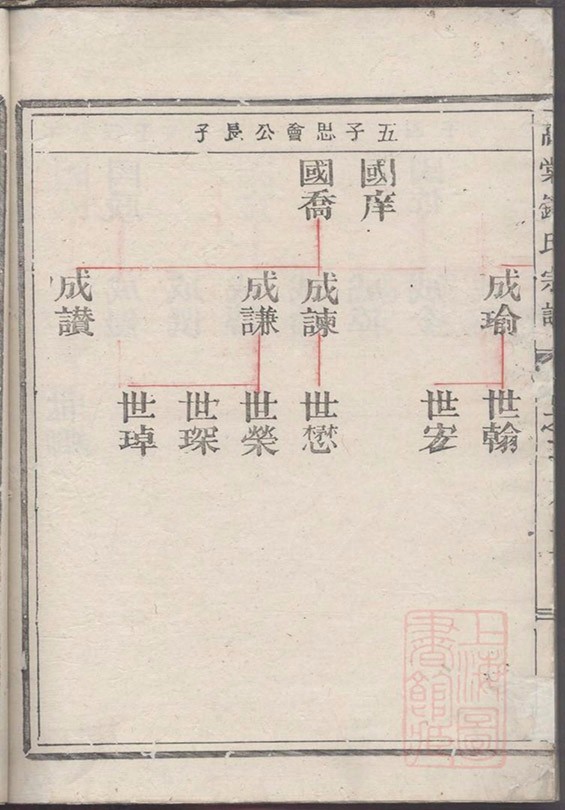 氏宗譜
五子思會公長子
國庠
國喬
成瑜
成諫
成謙
成讃
世翰
世宏
世懋
世榮
世琛
世琸
上海圖
書館藏